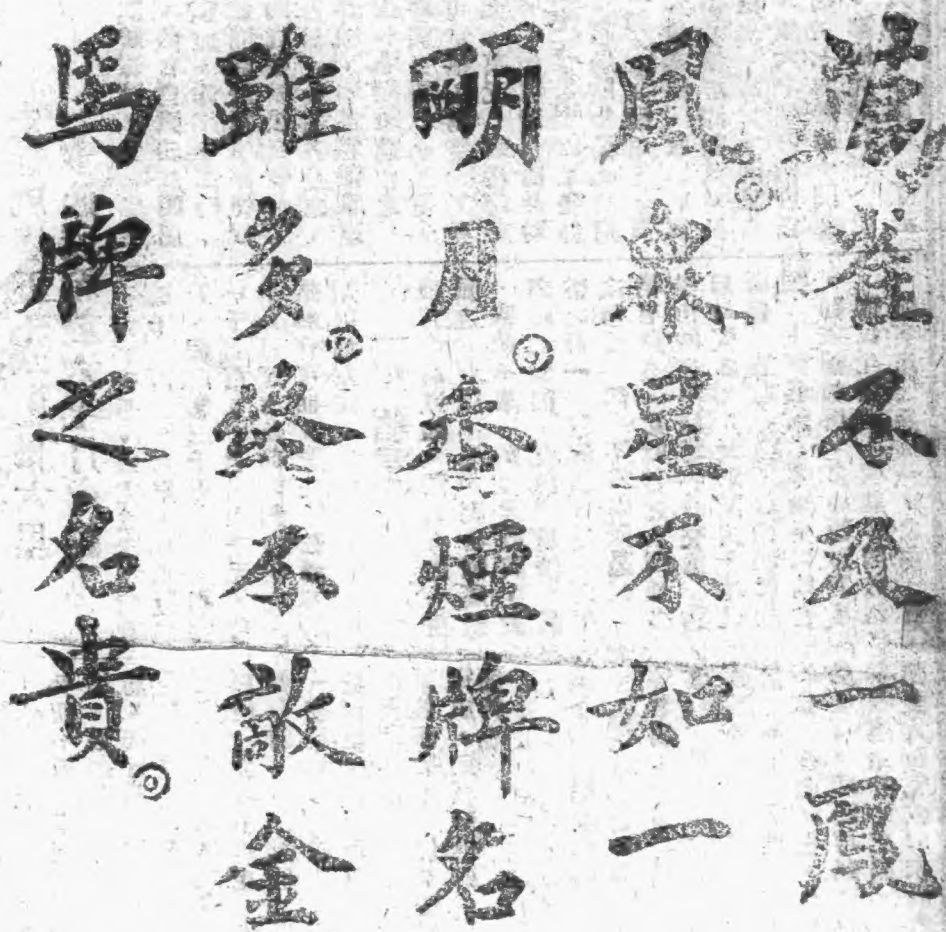 雀不及一鳳
凰◎衆星不如一
明月◎香煙牌名
雖多◎終不敵金
馬牌之名貴◎